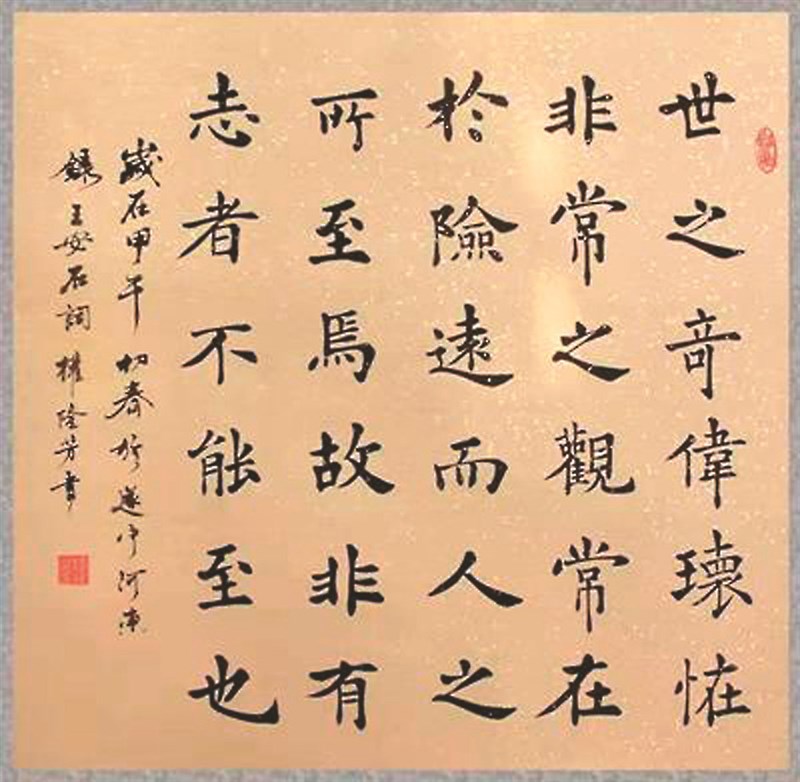 世之竒偉瓌恠
非常之觀常在
於險遠而人之
所至焉故非有
志者不能至也
歲在甲午初春於中河東
錄王安石詞 權隆芳書